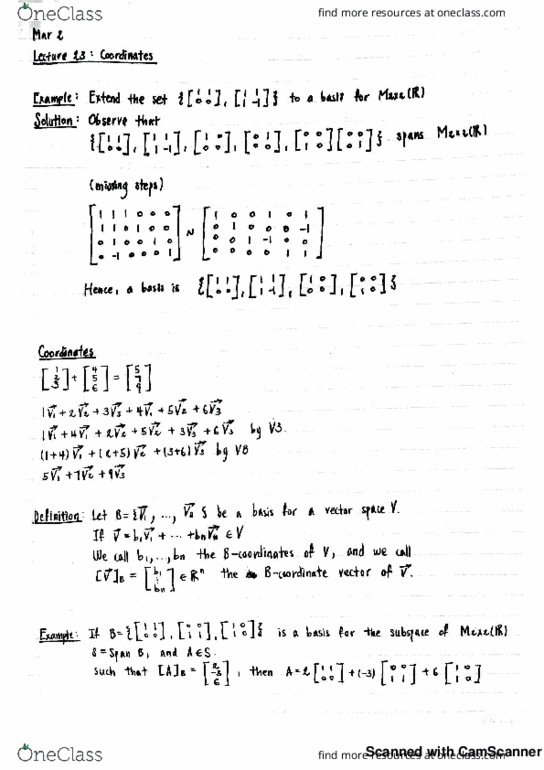 OneClass find more resources at oneclass.com
Mar 2
Lecture 23: Coordinates
Example: Extend the set {[1 1; 0 0], [1 1; 1 -1]} to a basis for M2x2(R)
Solution: Observe that
{[1 1; 0 0], [1 1; 1 -1], [1 0; 0 0], [0 1; 0 0], [0 0; 1 0] [0 0; 0 1]} spans M2x2(R)
(missing steps)
[1 1 1 0 0 0; 1 1 0 1 0 0; 0 1 0 0 1 0; 0 -1 0 0 0 1] ~ [1 0 0 1 0 1; 0 1 0 0 0 -1; 0 0 1 -1 0 0; 0 0 0 0 1 1]
Hence, a basis is {[1 1; 0 0], [1 1; 1 -1], [1 0; 0 0], [0 0; 1 0]}
Coordinates
[1 2 3] + [4 5 6] = [5 7 9]
1v1 + 2v2 + 3v3 + 4v1 + 5v2 + 6v3
1v1 + 4v1 + 2v2 + 5v2 + 3v3 + 6v3 by V3.
(1+4)v1 + (2+5)v2 + (3+6)v3 by V8
5v1 + 7v2 + 9v3
Definition: Let B = {v1, ..., vn} be a basis for a vector space V.
If v = b1v1 + ... + bnvn ∈ V
We call b1, ..., bn the B-coordinates of V, and we call
[v]B = [b1 ⋮ bn] ∈ R^n the B-coordinate vector of v.
Example: If B = {[1 1; 0 0], [0 0; 1 1], [1 0; 1 0]} is a basis for the subspace of M2x2(R)
S = Span B, and A∈S.
such that [A]B = [2 -3 6], then A = 2 [1 1; 0 0] + (-3) [0 0; 1 1] + 6 [1 0; 1 0]
Scanned with CamScanner
OneClass find more resources at oneclass.com